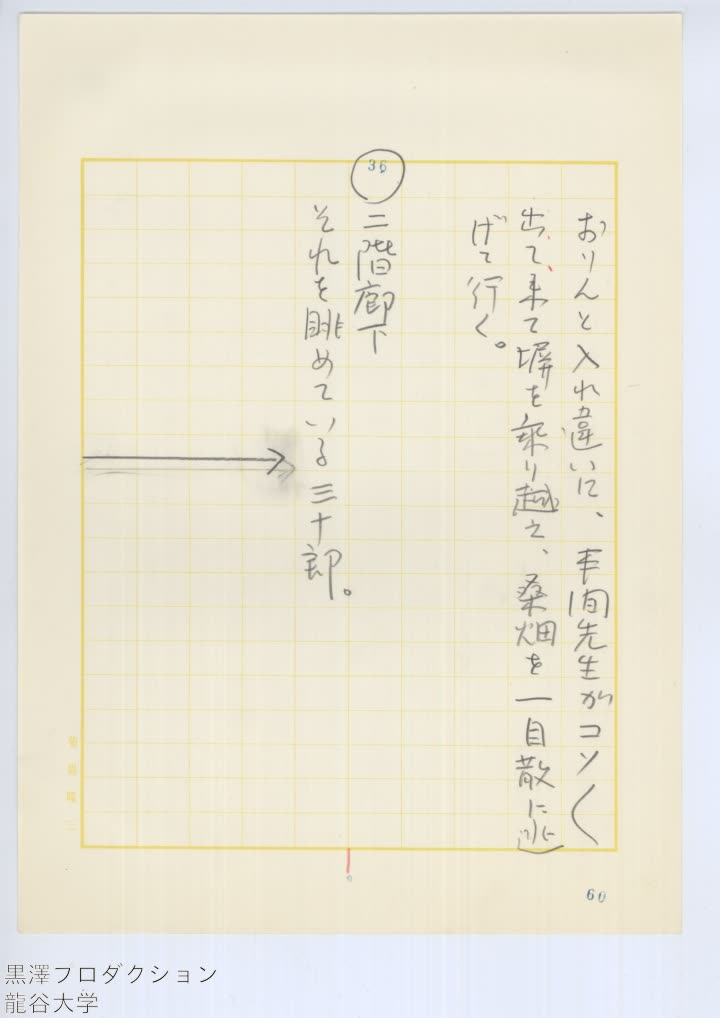 おりんと入れ違いに、本間先生がコソ〱
出て、来て塀を乗り越え、桑畑を一目散に逃
げて行く。
36
二階廊下
それを眺めている三十郎。
60
黒澤プロダクション
龍谷大学